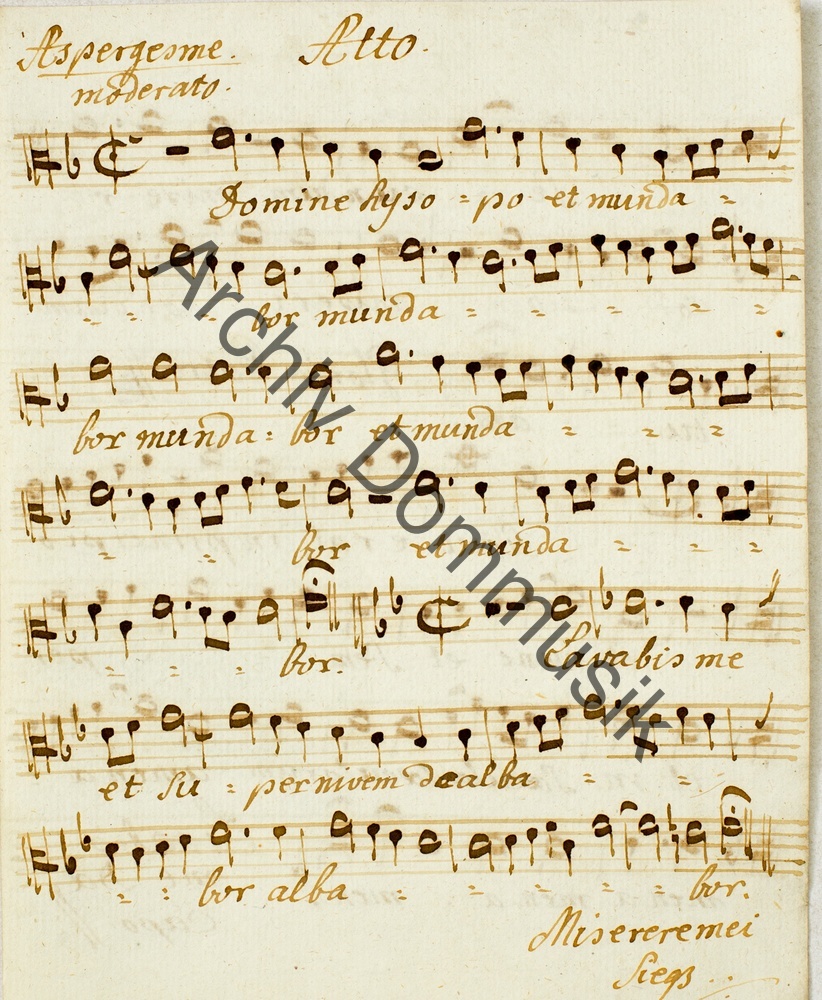 Asperges me. Alto.
moderato.
Domine hyso - po et munda =
= = - bor munda = = = = =
bor munda = bor et munda = = =
= = bor et munda = = =
= = = bor. Lavabis me
et su = per nivem dealba = =
= = bor alba = = = = = bor.
Miserere mei
Archiv Dommusik